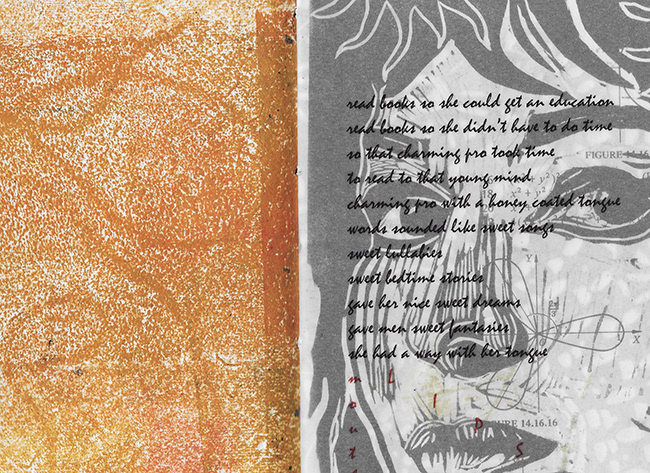 read books so she could get an education
read books so she didn't have to do time
so that charming pro took time
FIGURE 14.16
to read to that young mind
charming pro with a honey coated tongue
x² + y²
words sounded like sweet songs
sweet lullabies
sweet bedtime stories
Y
gave her nice sweet dreams
gave men sweet fantasies
X
she had a way with her tongue
m o u t
L I P S
FIGURE 14.16.16